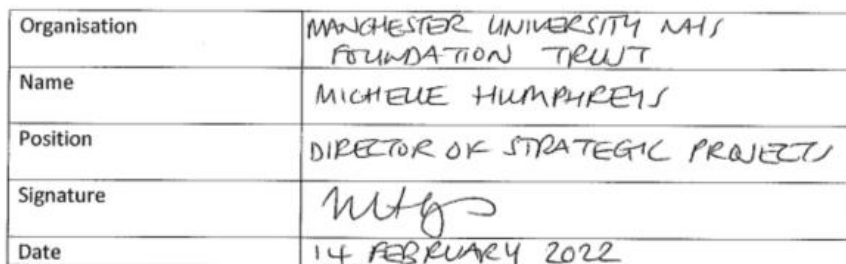 Organisation MANCHESTER UNIVERSITY NHS
FOUNDATION TRUST
Name MICHELLE HUMPHREYS
Position DIRECTOR OF STRATEGIC PROJECTS
Signature
Date 14 FEBRUARY 2022